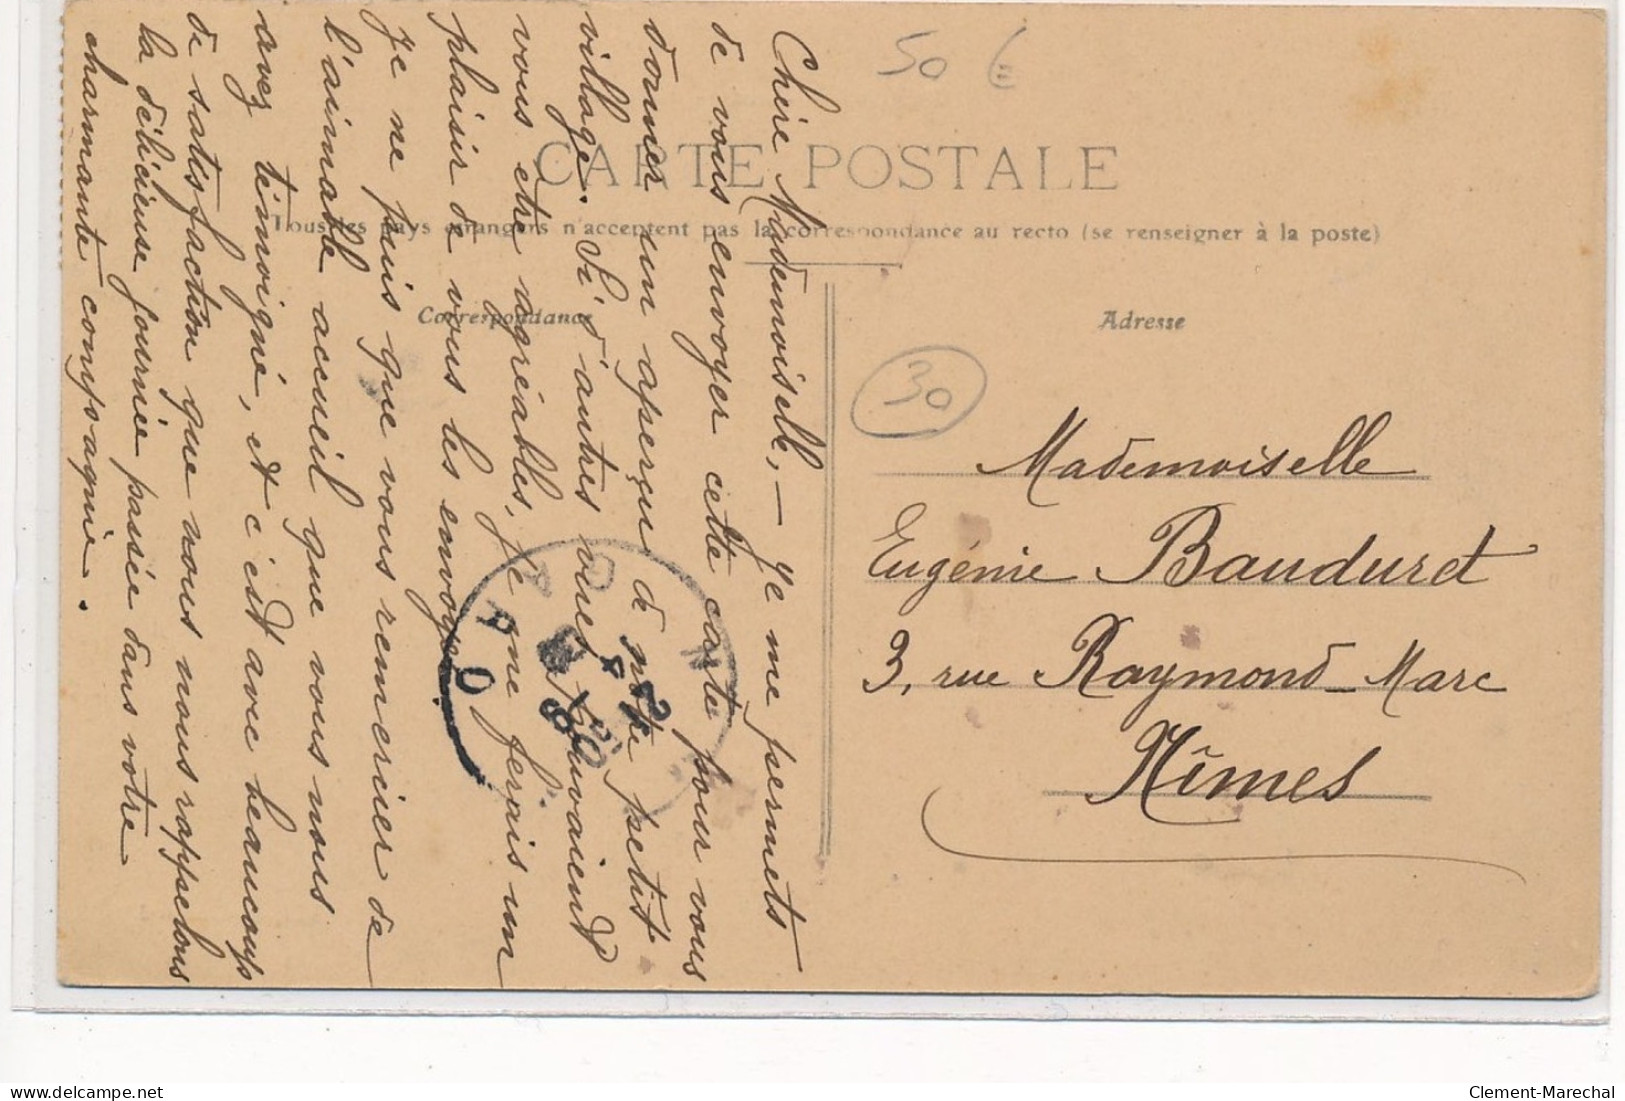 50 €
CARTE POSTALE
Tous les pays étrangers n'acceptent pas la correspondance au recto (se renseigner à la poste)
Correspondance
Chère Mademoiselle, — Je me permets
de vous envoyer cette carte pour vous
donner un aperçu de notre petit
village. Si d'autres vues pouvaient
vous être agréables, je me ferais un
plaisir de vous les envoyer.
Je ne puis que vous remercier de
l'aimable accueil que vous nous
avez témoigné, et c'est avec beaucoup
de satisfaction que nous nous rappelons
la délicieuse journée passée dans votre
charmante compagnie.
Adresse
30
Mademoiselle
Eugénie Bauduret
3, rue Raymond-Marc
Nîmes
GARD
delcampe.net
Clement-Marechal